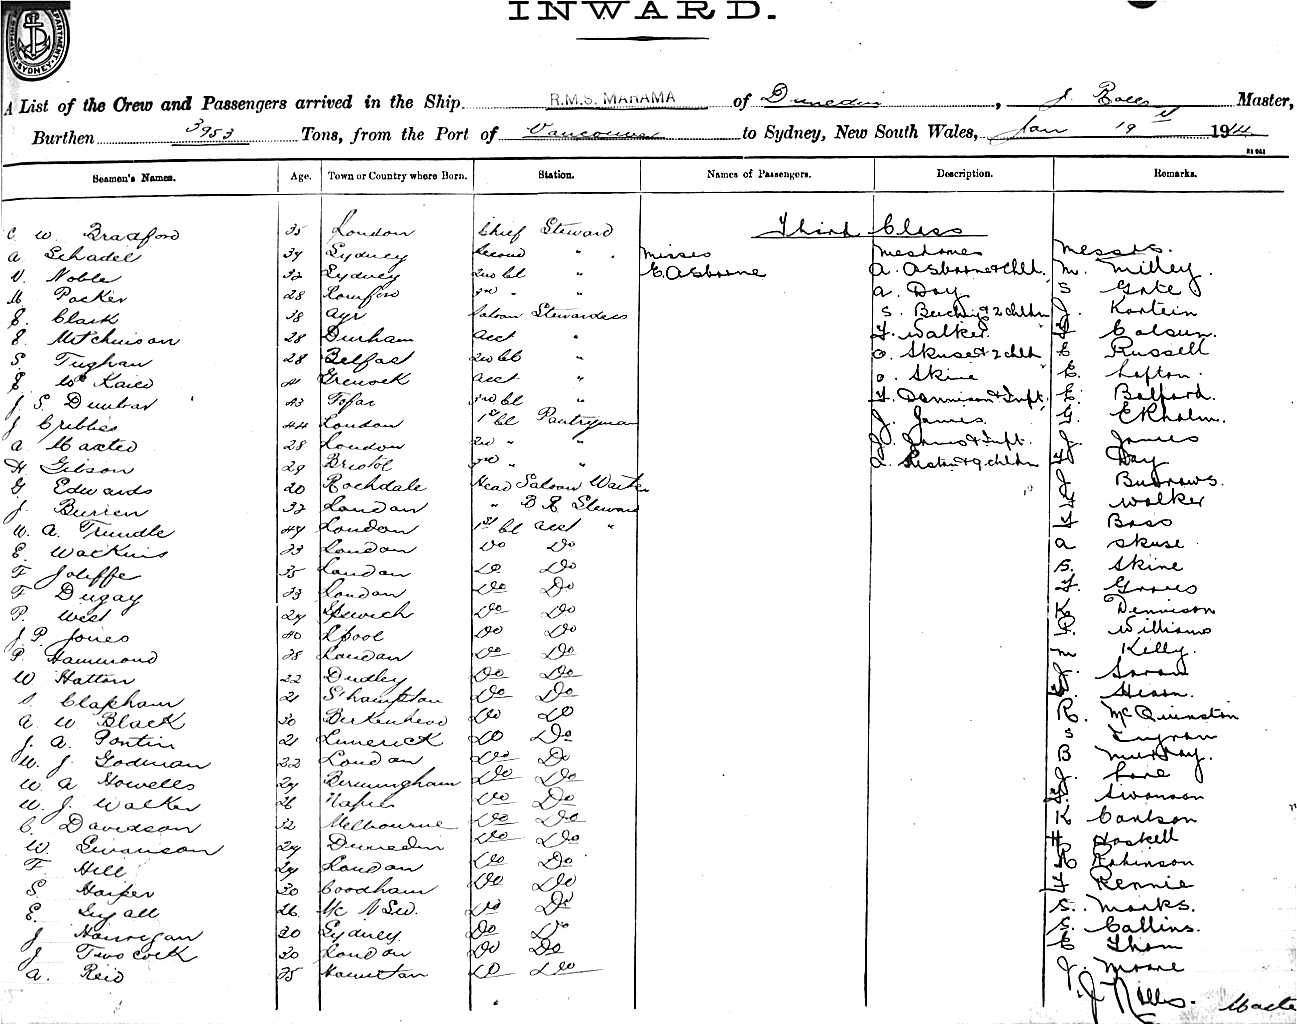 INWARD.
DEPARTMENT. SYDNEY.
A List of the Crew and Passengers arrived in the Ship R.M.S. MARAMA of Dunedin, J Rolls Master,
Burthen 3953 Tons, from the Port of Vancouver to Sydney, New South Wales, Jan 19 1914
Seamen's Names. Age. Town or Country where Born. Station. Names of Passengers. Description. Remarks.
C. W. Bradford 35 London Chief Steward Third Class
A Schadel 39 Sydney Second " Misses Mesdames Messrs.
V. Noble 32 Sydney 2nd Cl " E. Osborne A. Osborne & Chld. M. Milley.
M Packer 28 Romford 3rd " " A. Day S Gate
E. Clark 38 Ayr Saloon Stewardess S. & 2 chldn J.
E. Mitchinson 28 Durham Asst " F. Walker
S. Tughan 28 Belfast 2nd Cl " O. Skuse & 2 chldn C Russell
E 41 Greenock Asst " O. Skine E. Lofton.
J. S. Dunbar 43 3rd Cl " F. Dennison & Inft. E. Balfard.
J Cribbes 44 London 1st Cl Pantryman J. James. G. Ekholm.
A Maxted 28 London 2nd " " J. James & Inft. J. James
H Gibson 29 Bristol 3rd " " & 9 chldn Day
G Edwards 20 Rochdale Head Saloon Waiter J Burrows.
J. Burren 32 London " B R Steward Walker
W. A. Trundle 49 London 1st Cl Asst " Bass
E. Watkins 23 London Do Do A Skuse
F Joliffe 35 London Do Do S. Skine
F Dugay 23 London Do Do Graves
P. West 24 Ipswich Do Do K Dennison
J. P. Jones 40 L'pool Do Do P. Williams
P. Hammond 28 London Do Do M Killy.
W Hatton 22 Dudley Do Do J.
Clapham 21 S'hampton Do Do
A. W Black 30 Birkenhead Do Do R. McQuinston
J. A. Pontin 21 Limerick Do Do S
W. J. Godman 22 London Do Do B Murray.
W A Howells 24 Birmingham Do Do J. Lane
W. J. Walker 26 Do Do Swanson
C. Davidson 32 Melbourne Do Do K Carlson
W. Swanson 24 Dunedin Do Do H Haskell
F. Hill 24 London Do Do R
S. Harper 30 Coodham Do Do Rennie
E. 26 NSW. Do Do S. Marks.
J Hannigan 20 Sydney Do Do S. Collins.
J Twocock 30 London Do Do C Thom
A. Reid 25 Hamilton Do Do J. Moore
J Rolls. Master